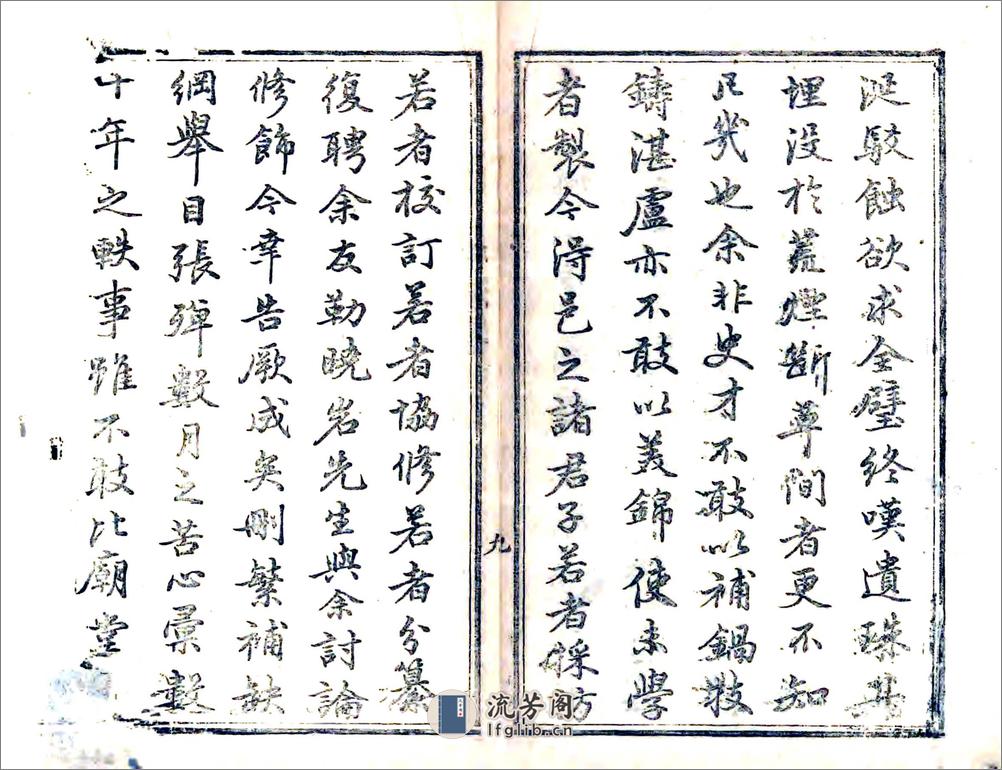 涎駁蝕欲求全璧終嘆遺珠其
埋没於荒煙斷草間者更不知
凡幾也余非史才不敢以補鍋技
鑄湛盧亦不敢以美錦使未學
者製今得邑之諸君子若者採訪
若者校訂若者協修若者分纂
復聘余友勒曉岩先生與余討論
修飾今幸告厥成矣刪繁補缺
綱舉目張殫數月之苦心彙數
十年之軼事雖不敢比廟堂
九
流芳阁
lfglib.cn